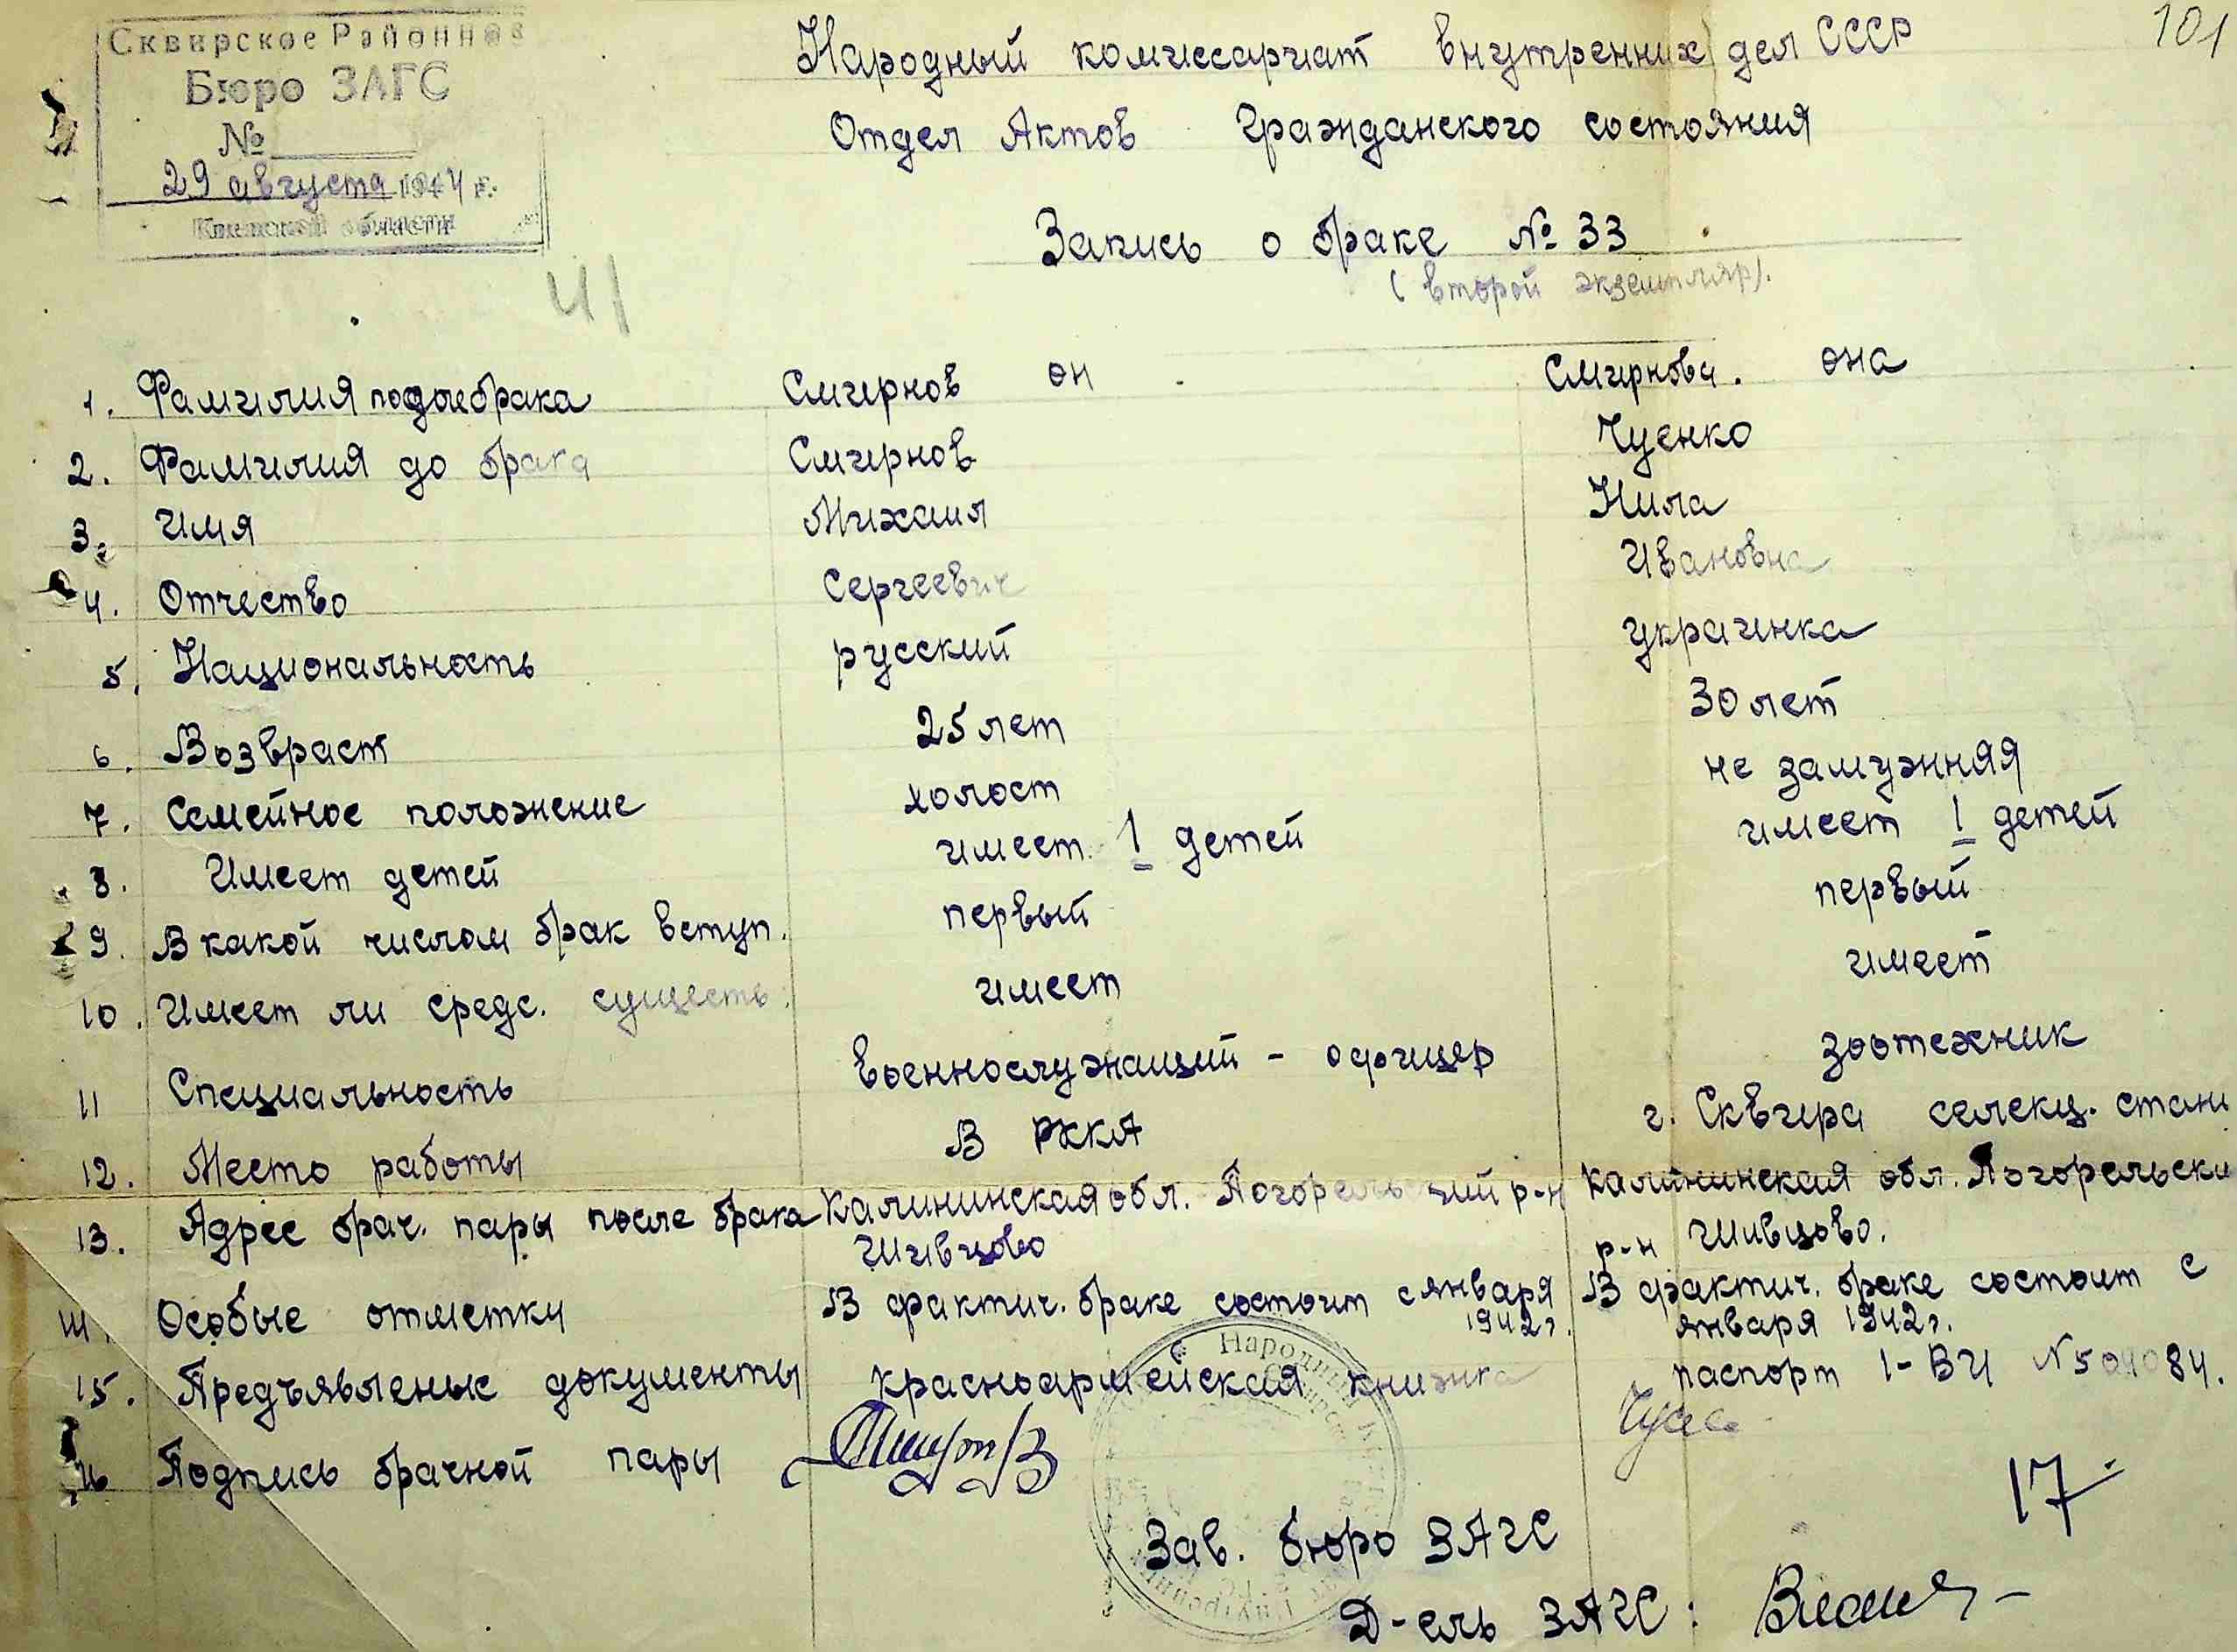 101
Сквирское Районное
Бюро ЗАГС
№
29 августа 1944 г.
Киевской области
41
Народный комиссариат внутренних дел СССР
Отдел Актов Гражданского состояния
Запись о браке № 33
(второй экземпляр).
он она
1. Фамилия после брака Смирнов Смирнова.
2. Фамилия до брака Смирнов Чуенко
3. Имя Михаил Нила
4. Отчество Сергеевич Ивановна
5. Национальность русский украинка
6. Возвраст 25 лет 30 лет
7. Семейное положение холост не замужняя
8. Имеет детей имеет 1 детей имеет 1 детей
9. В какой числом брак вступ. первый первый
10. Имеет ли средс. существ. имеет имеет
11 Специальность военнослужащий - офицер зоотехник
12. Место работы В РККА г. Сквира селекц. стан
13. Адрес брач. пары после брака Калининская обл. Погорельский р-н Калининская обл. Погорельски
Шивцово р-н Шивцово.
14. Особые отметки В фактич. браке состоит с января В фактич. браке состоит с
1942 г. января 1942 г.
15. Предъявленые документы красноармейская книжка паспорт 1-ВЧ № 504084.
16 Подпись брачной пары
17
Зав. бюро ЗАГС
Д-ель ЗАГС: